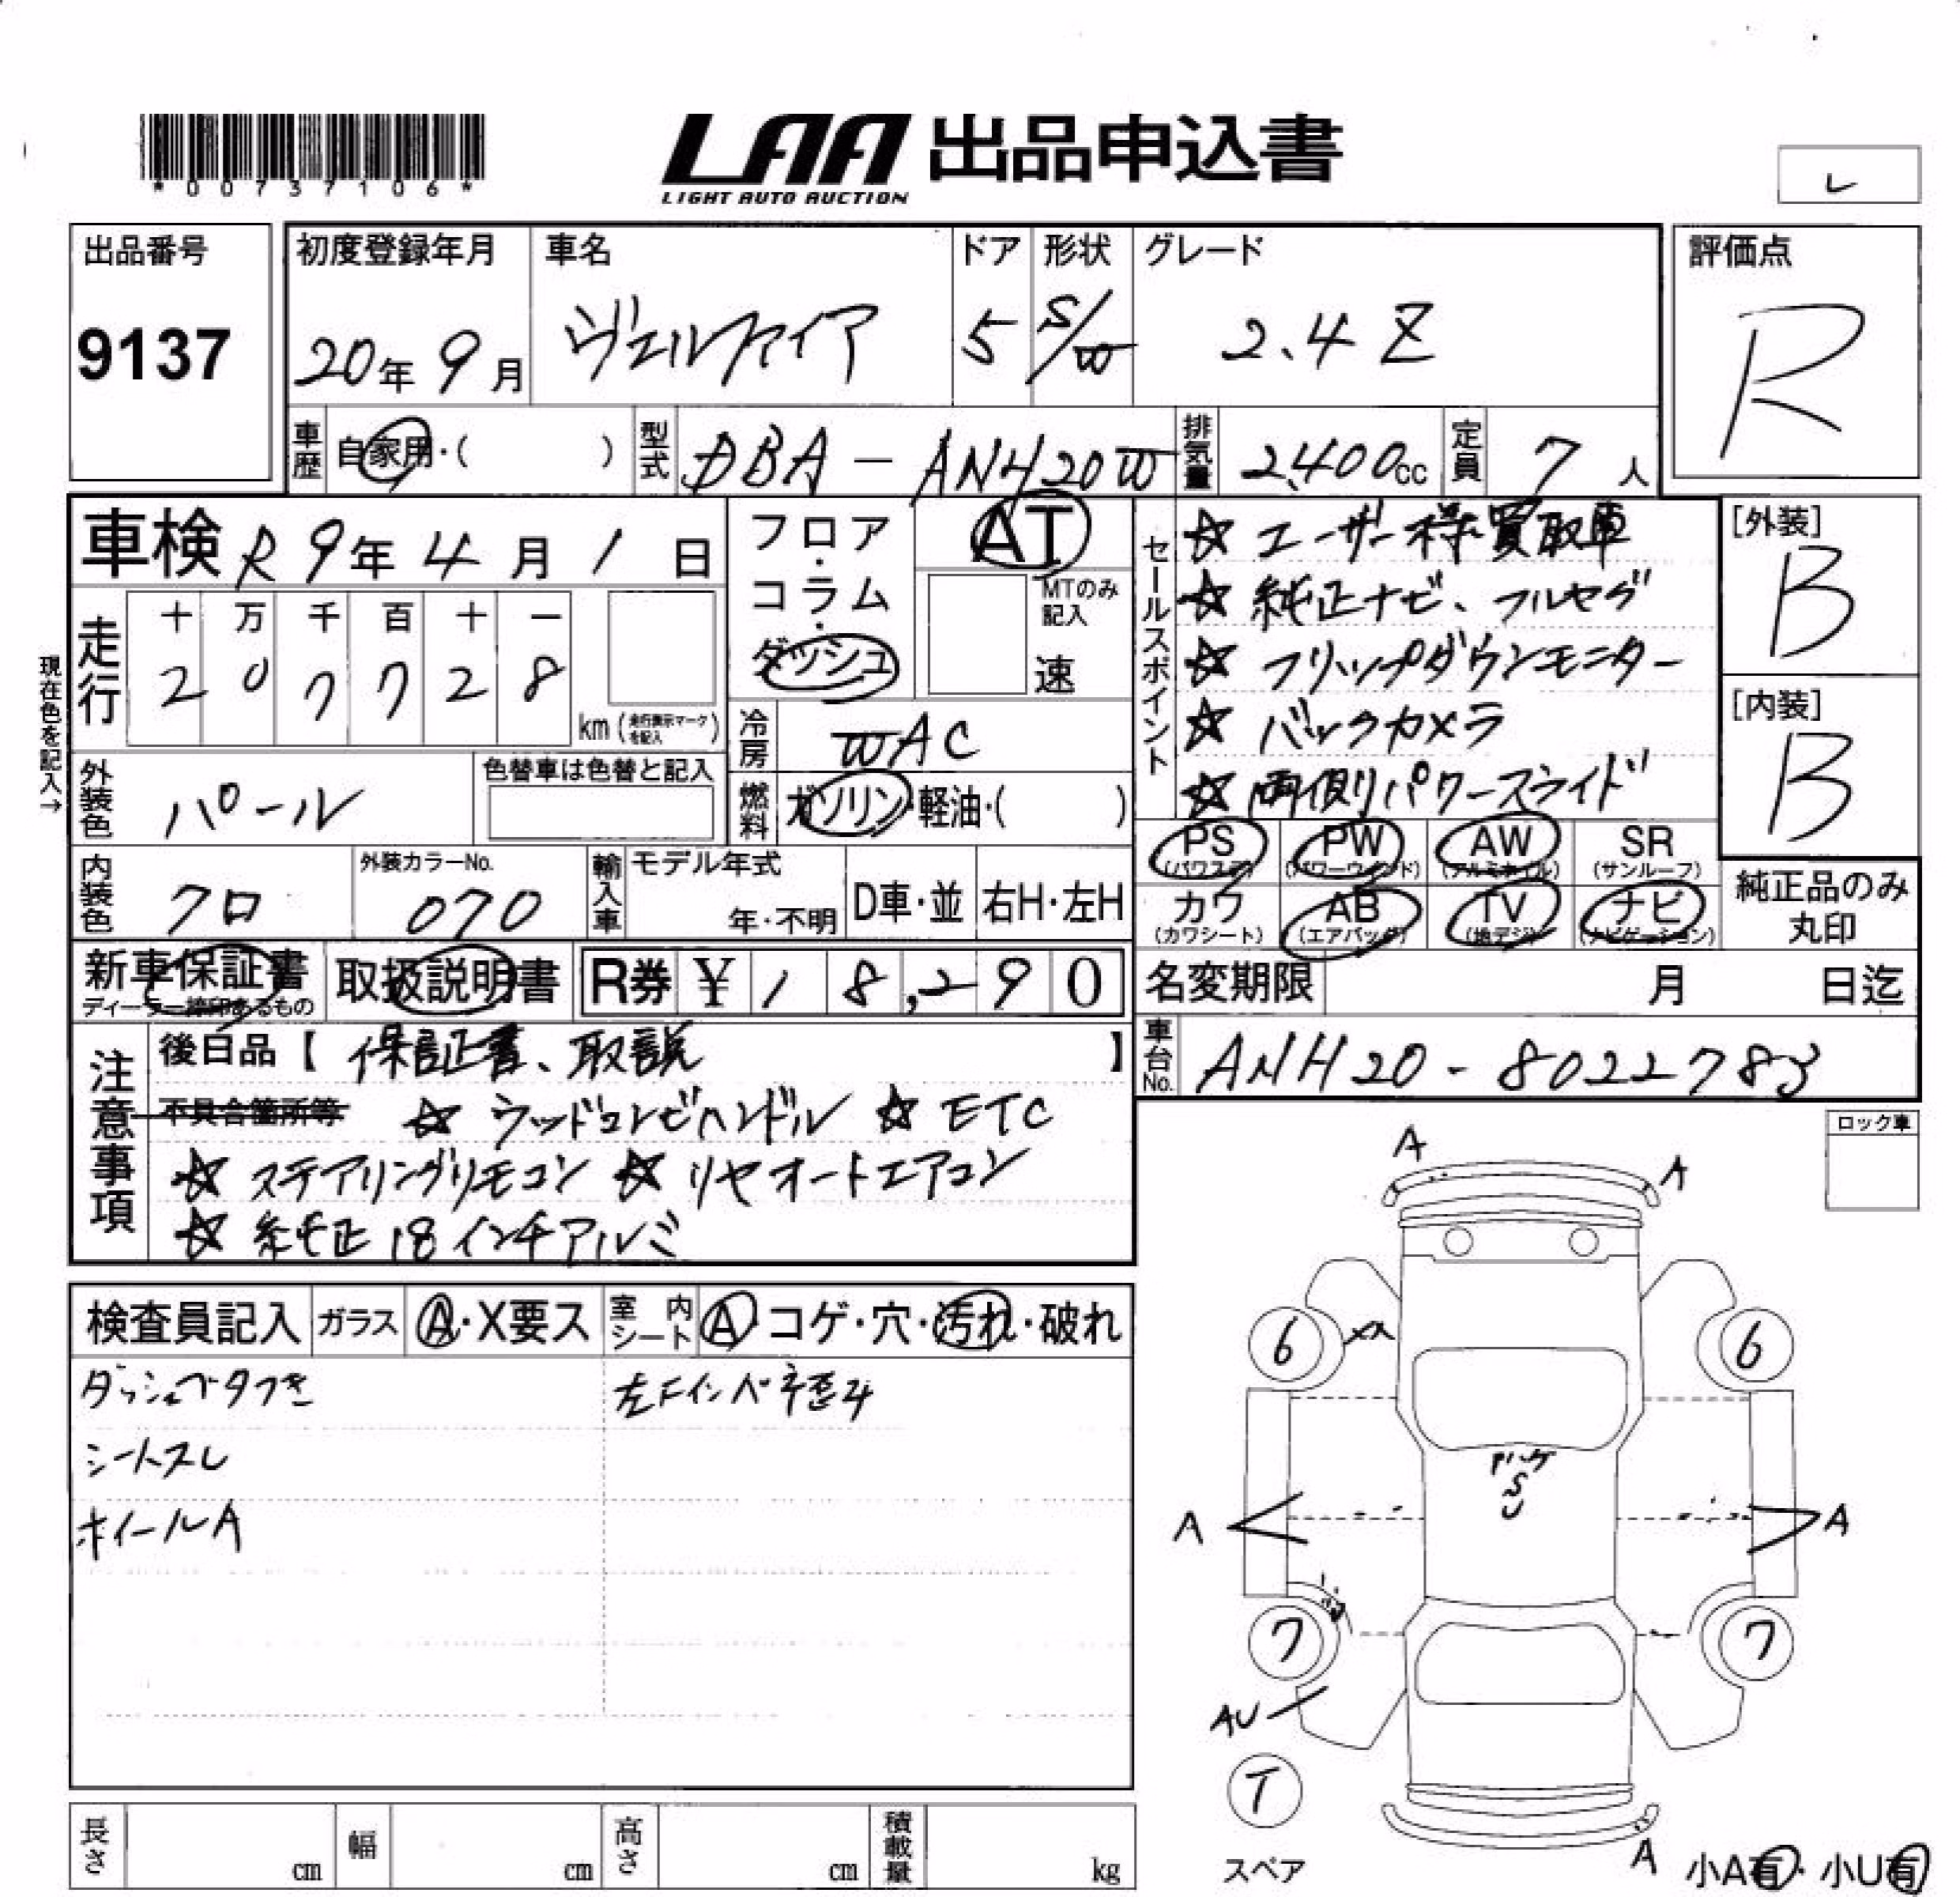 *00737106*
LAA 出品申込書
LIGHT AUTO AUCTION
レ
出品番号
9137
初度登録年月
20年 9月
車名
ヴェルファイア
ドア
5
形状
S/W
グレード
2.4 Z
評価点
R
車歴 自家用・( )
型式 DBA-ANH20W
排気量 2,400cc
定員 7人
車検 R9年4月1日
フロア・コラム・ダッシュ
AT
MTのみ記入
速
現在色を記入→
走行
十 万 千 百 十 一
2 0 7 7 2 8
km (走行表示マークを記入)
冷房 WAC
外装色 パール
色替車は色替と記入
燃料 ガソリン・軽油・( )
内装色 クロ
外装カラーNo.
070
輸入車 モデル年式
年・不明
D車・並
右H・左H
セールスポイント
☆ユーザー様買取車
☆純正ナビ、フルセグ
☆フリップダウンモニター
☆バックカメラ
☆両側パワースライド
[外装]
B
[内装]
B
PS (パワステ)
PW (パワーウインド)
AW (アルミホイル)
SR (サンルーフ)
カワ (カワシート)
AB (エアバッグ)
TV (地デジ)
ナビ (ナビゲーション)
純正品のみ丸印
新車保証書
ディーラー捺印あるもの
取扱説明書
R券 ¥ 18,290
名変期限 月 日迄
注意事項
後日品【 保証書、取説 】
不具合箇所等 ☆ウッドコンビハンドル ☆ETC
☆ステアリングリモコン ☆リヤオートエアコン
☆純正18インチアルミ
車台No. ANH20-8022783
ロック車
検査員記入
ガラス A・X要ス
室内シート A コゲ・穴・汚れ・破れ
ダッシュベタつき
左Fインパネ歪み
シートスレ
ホイールA
A
A
6
XX
6
S
U
A
A
7
7
AU
T
スペア
A
小A有・小U有
長さ cm
幅 cm
高さ cm
積載量 kg